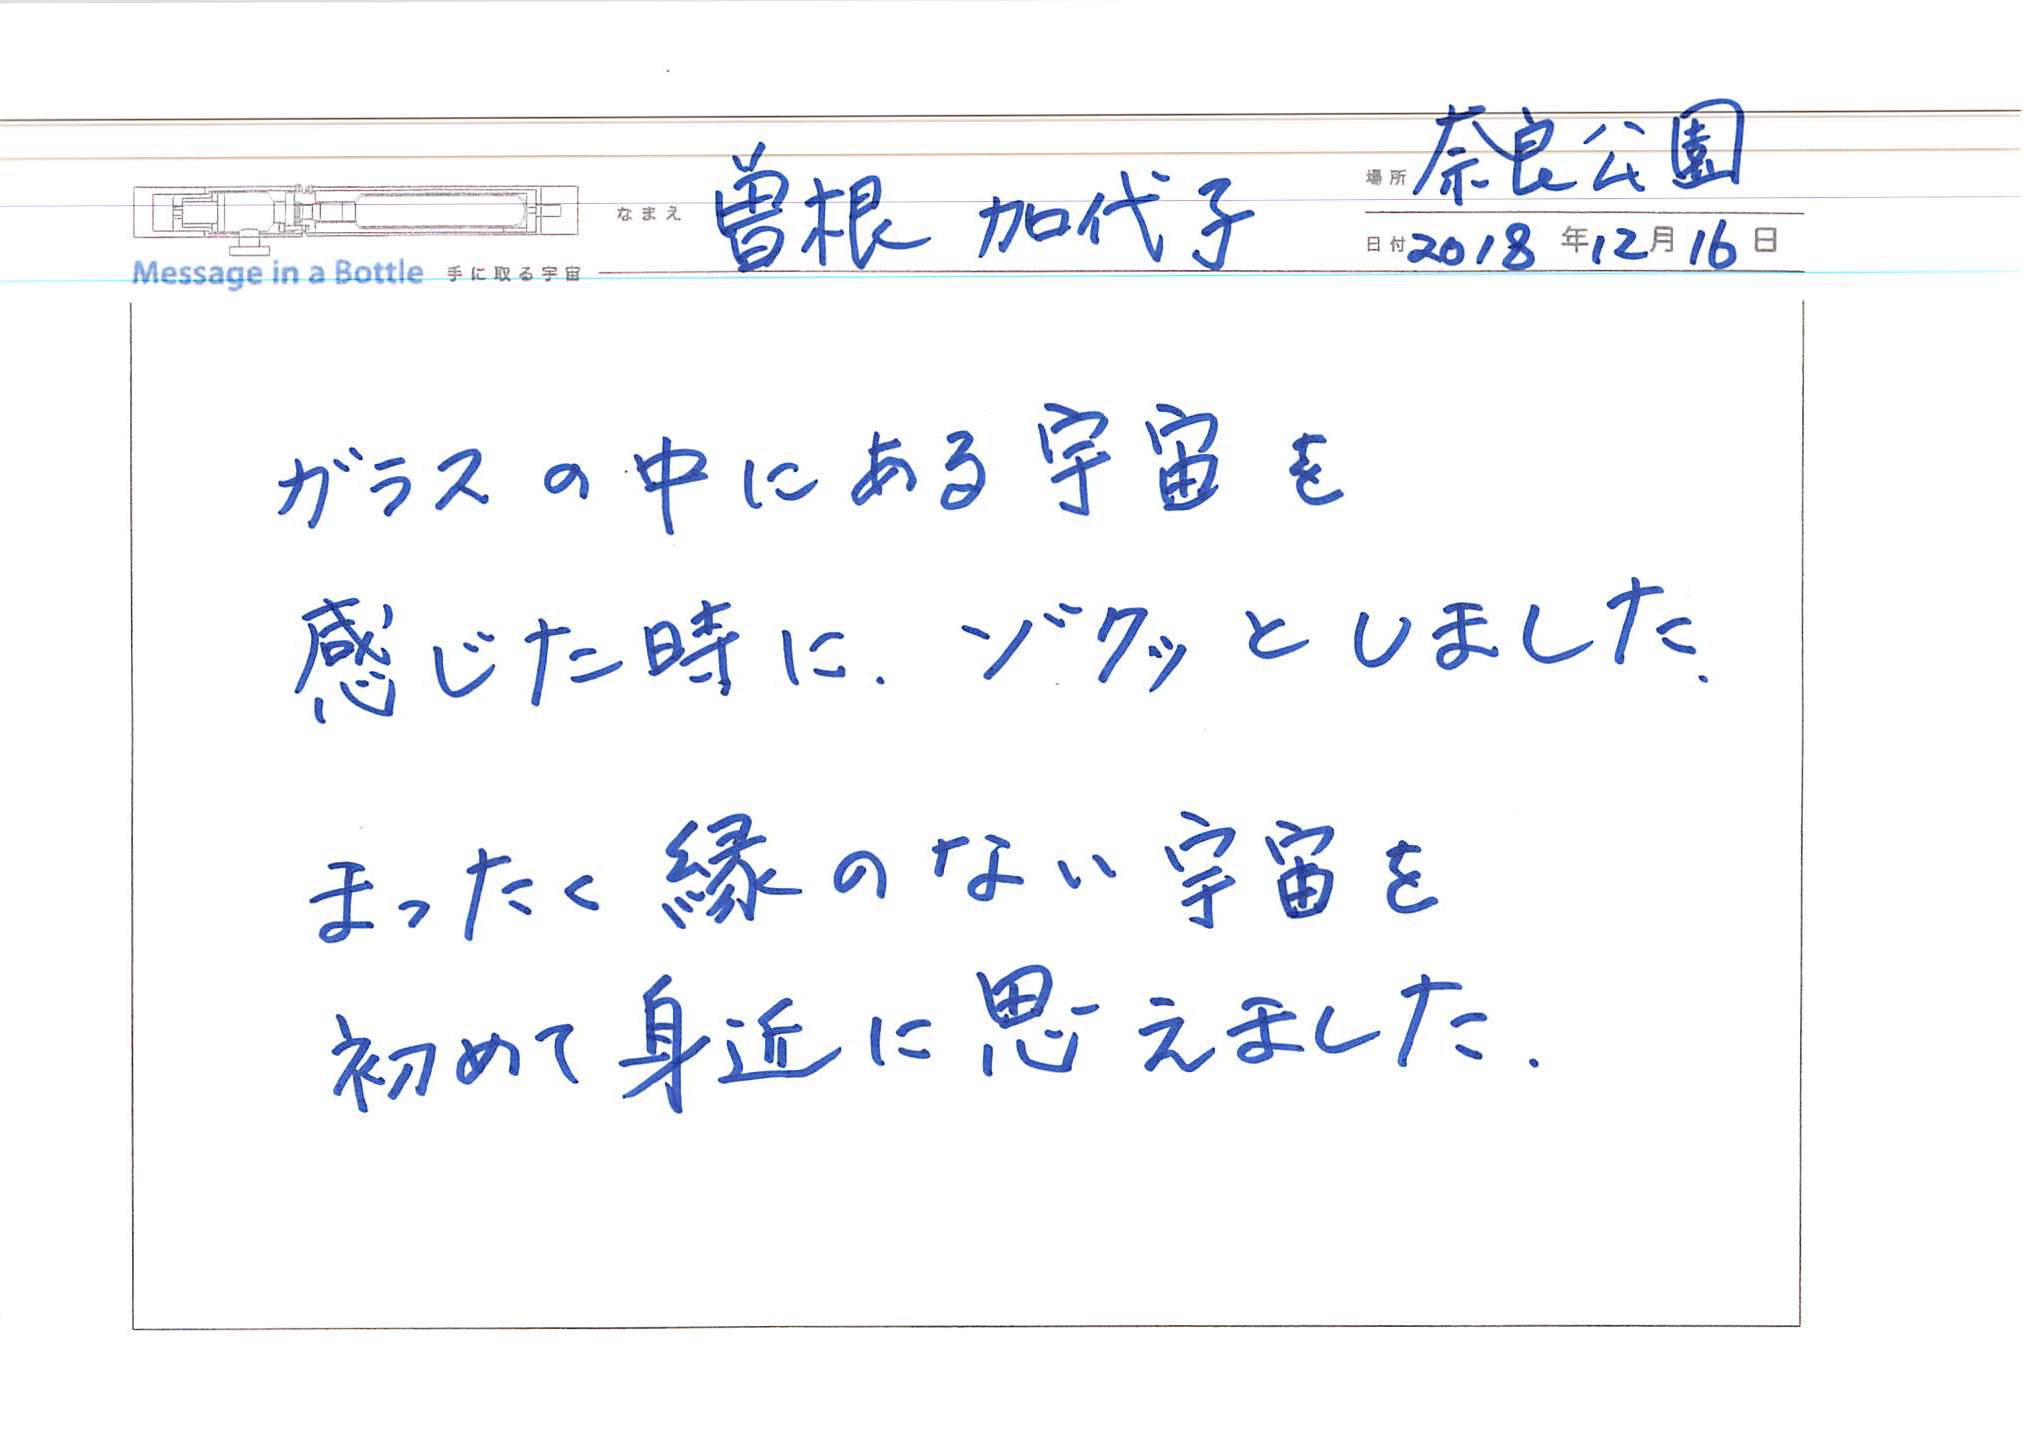 場所 奈良公園
なまえ 曽根 加代子
日付 2018年12月16日
Message in a Bottle 手に取る宇宙
ガラスの中にある宇宙を
感じた時に.ゾクッとしました.
まったく縁のない宇宙を
初めて身近に思えました.